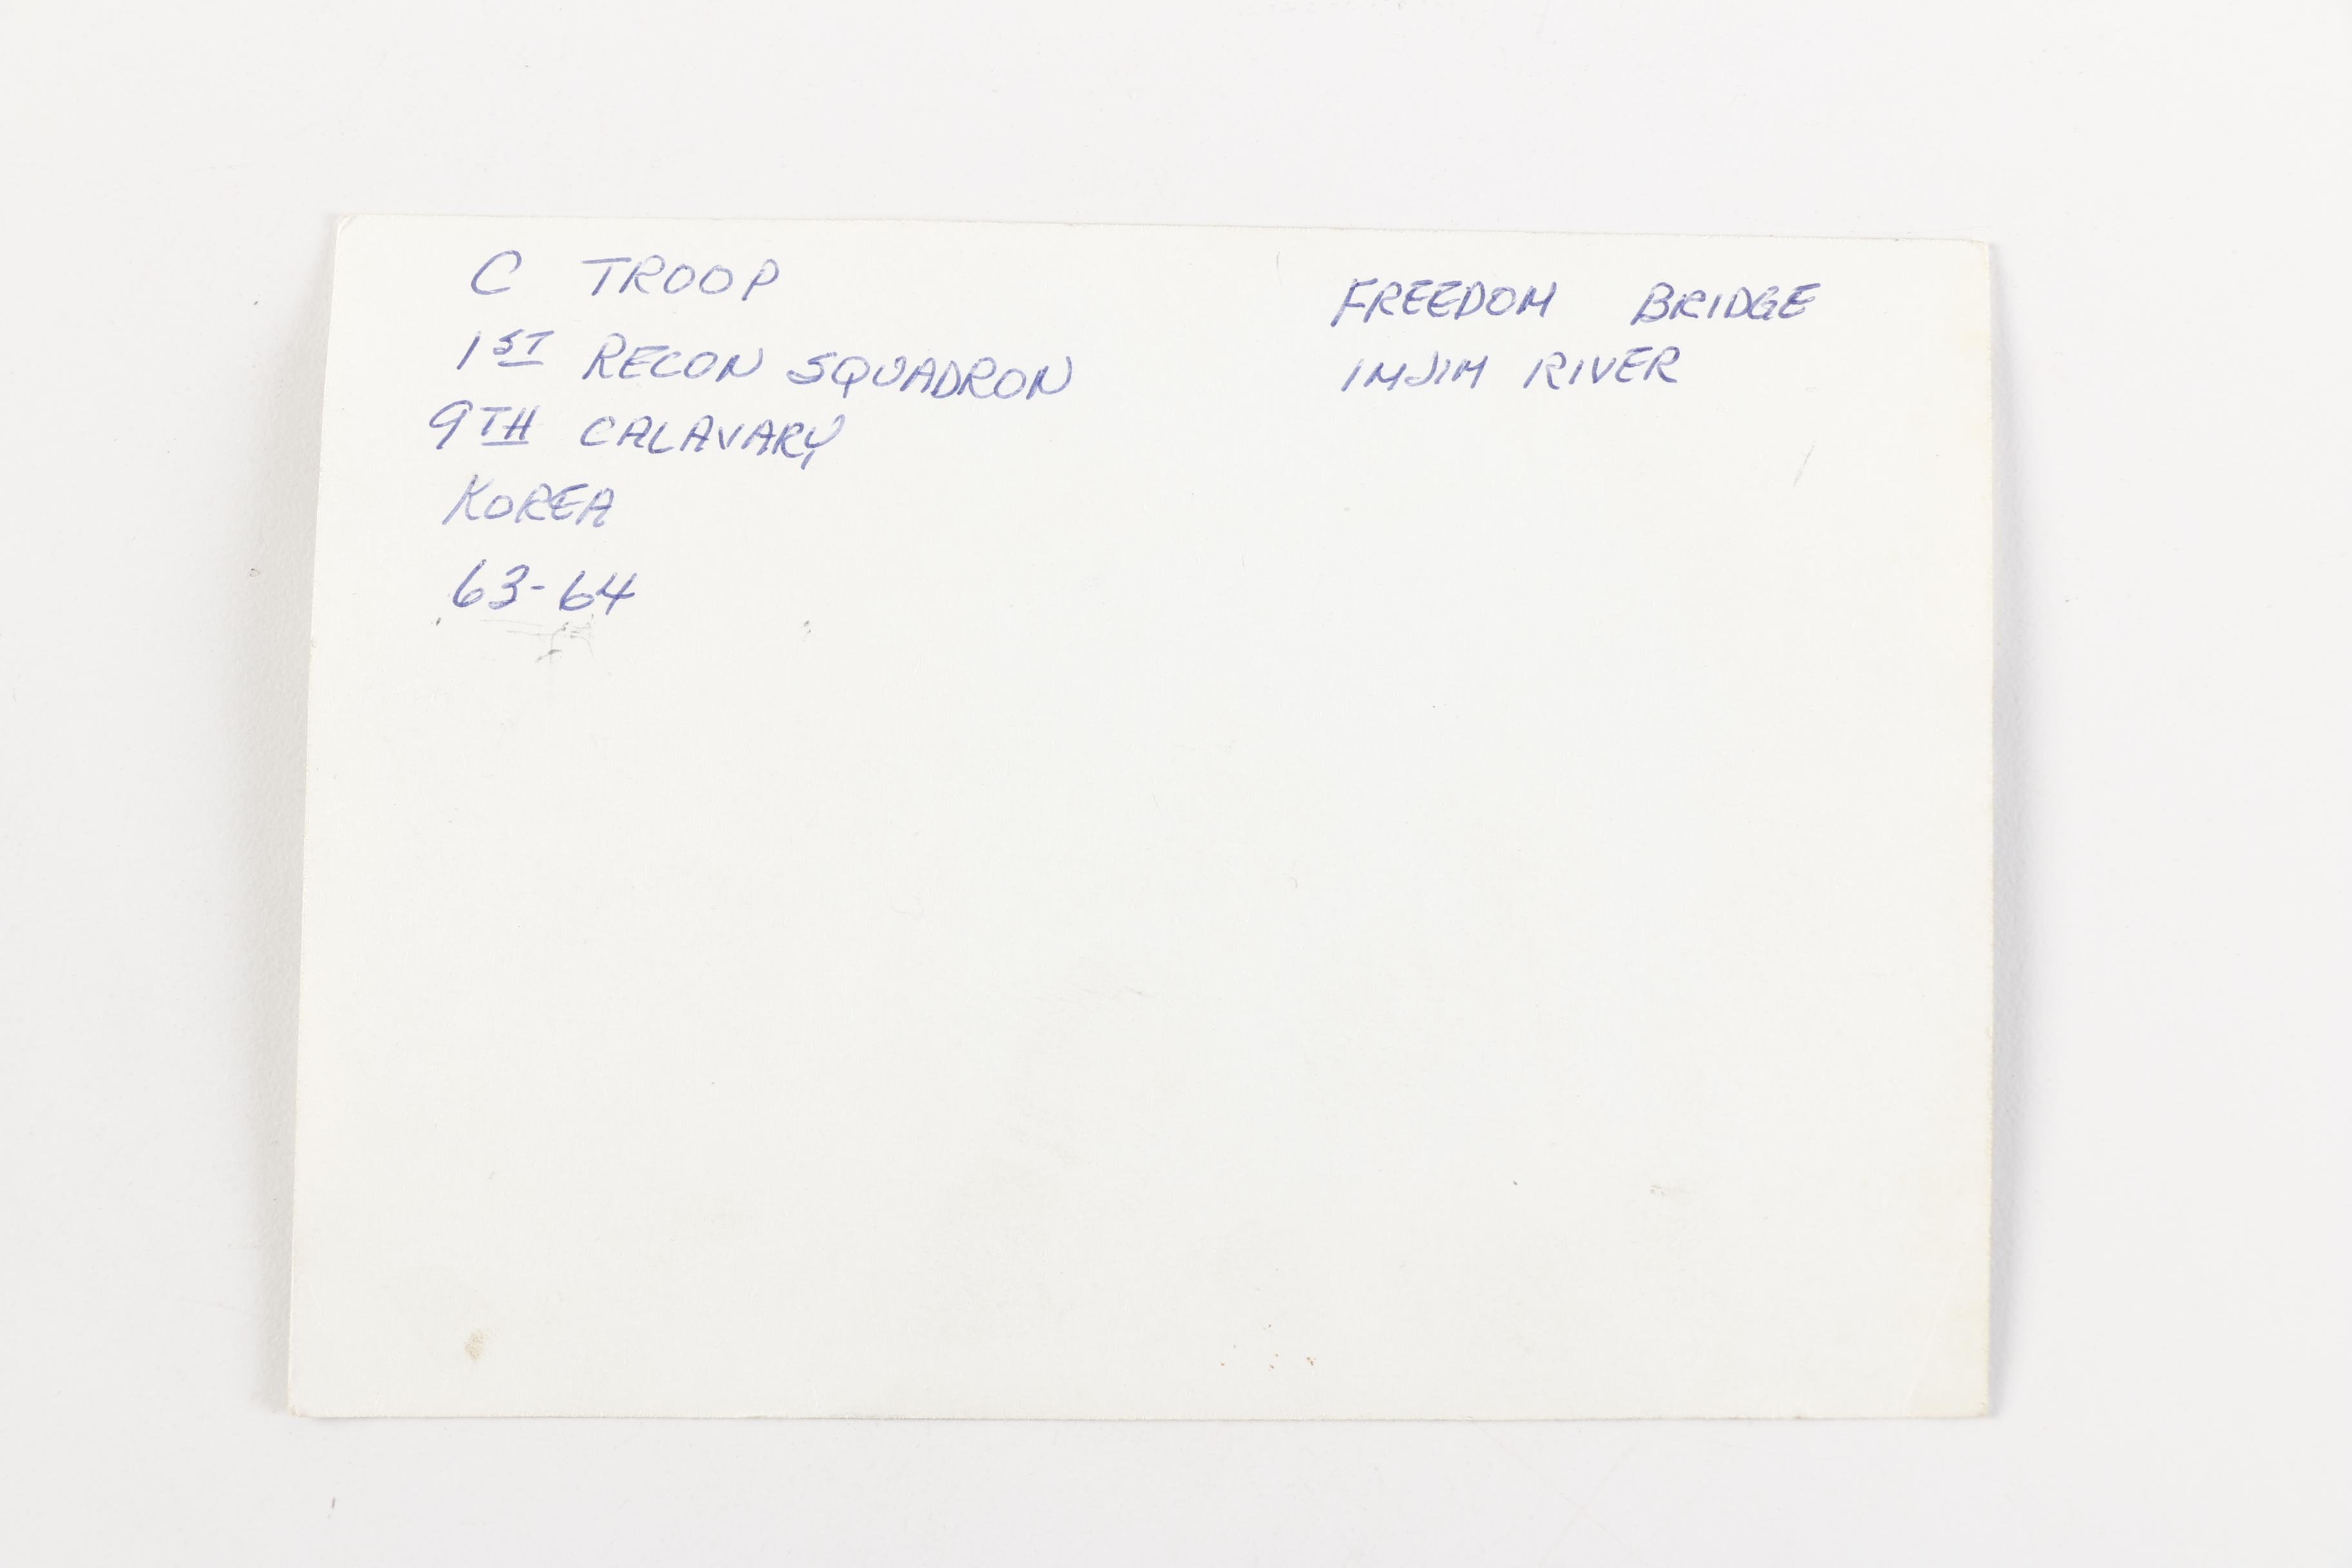 C TROOP
1ST RECON SQUADRON
9TH CALAVARY
KOREA
63-64
FREEDOM BRIDGE
IMJIM RIVER